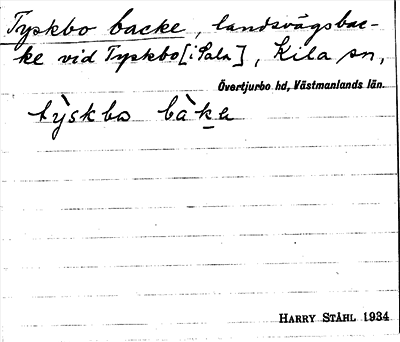 Tyskbo backe, landsvägsbac-
ke vid Tyskbo [i Sala], Kila sn,
Övertjurbo hd, Västmanlands län.
tỳskbo bàkа
HARRY STÅHL 1934